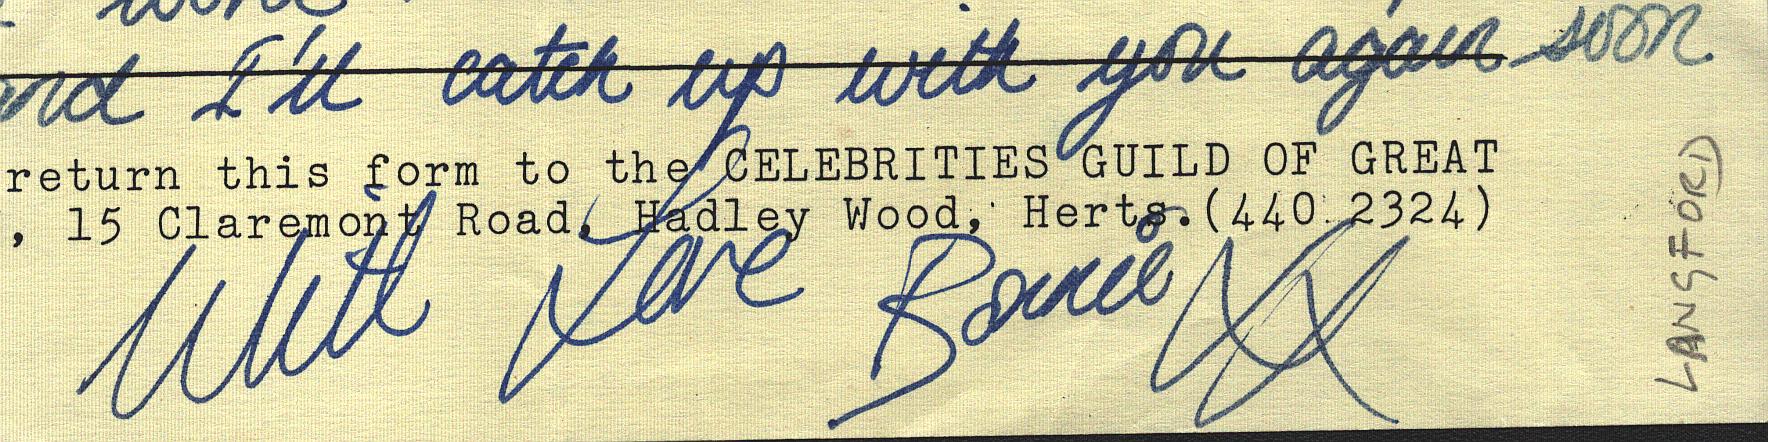 and I'll catch up with you again soon
return this form to the CELEBRITIES GUILD OF GREAT
, 15 Claremont Road, Hadley Wood, Herts.(440 2324)
With Love Bonnie XX
LANGFORD